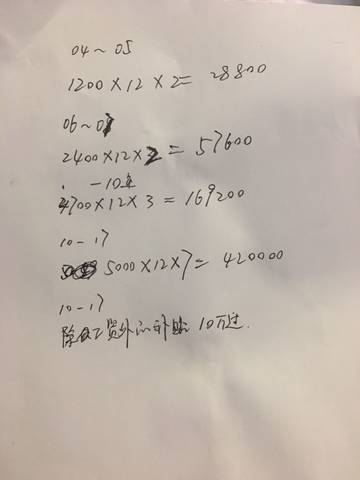 04~05
1200×12×2=28800
06~07
2400×12×2=57600
-10年
4700×12×3=169200
10-17
5000×12×7=420000
10-17
除工资外的补贴10万过.